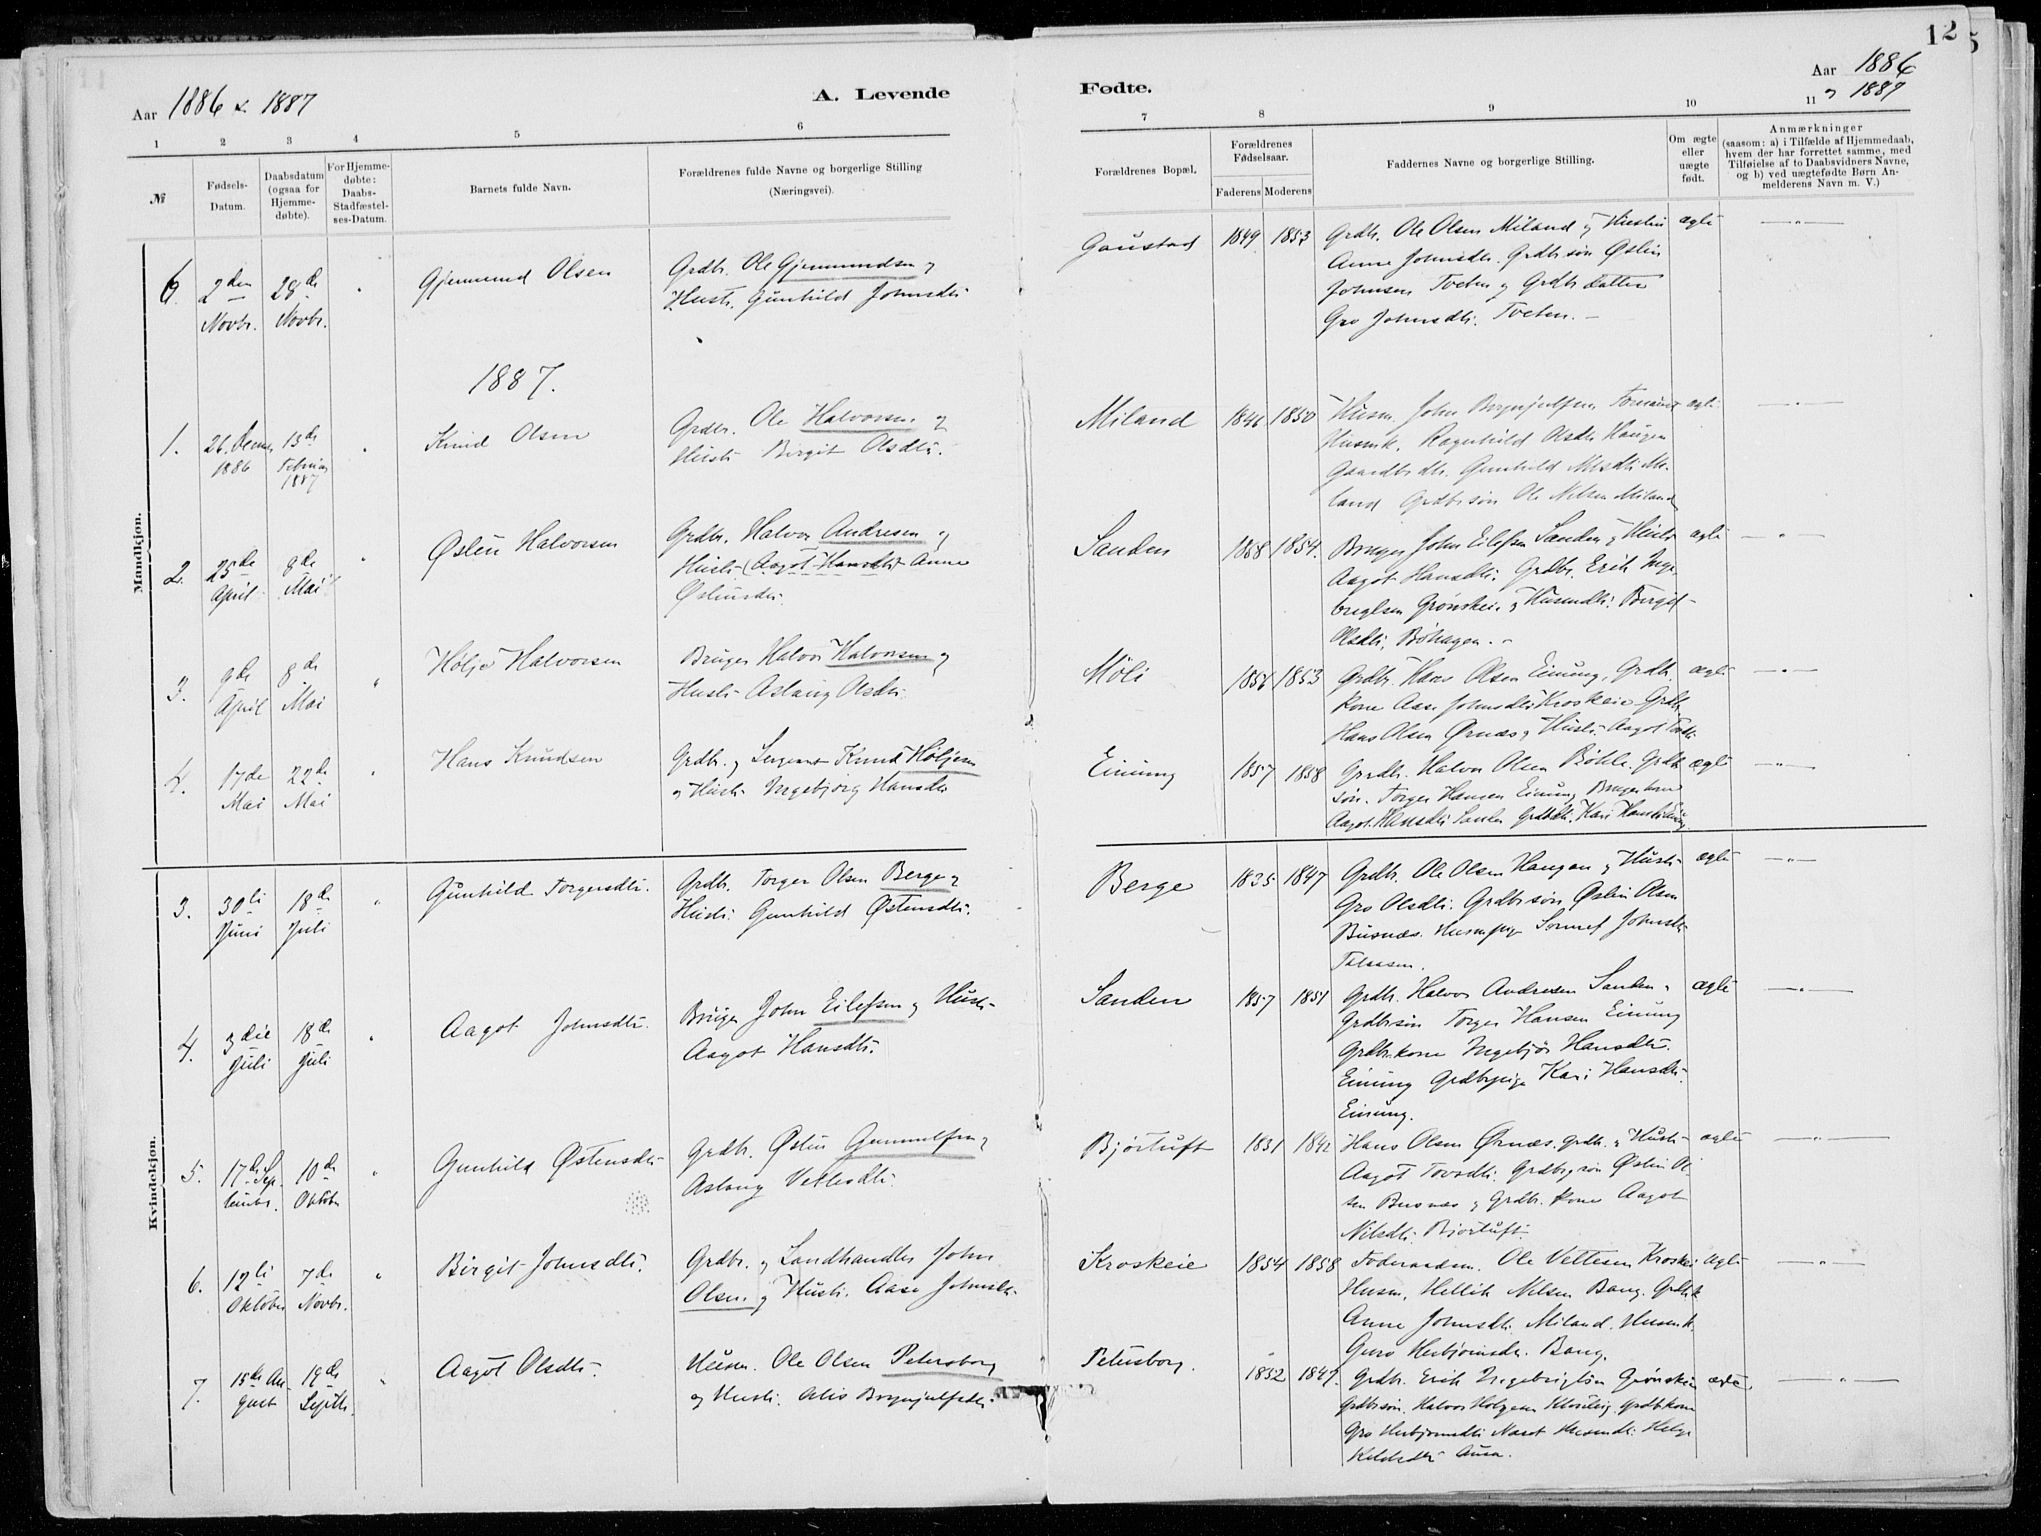 12
5
Aar 1886 & 1887
A. Levende
Fødte.
Aar 1886
1887
1 2 3 4 5 6
7 8 9 10 11
№
Fødsels-
Datum.
Daabsdatum
(ogsaa for
Hjemme-
døbte).
For Hjemme-
døbte:
Daabs-
Stadfæstel-
ses-Datum.
Barnets fulde Navn.
Forældrenes fulde Navne og borgerlige Stilling
(Næringsvei).
Forældrenes Bopæl.
Forældrenes
Fødselsaar.
Faderens Moderens
Faddernes Navne og borgerlige Stilling.
Om ægte
eller
uægte
født.
Anmærkninger
(saasom: a) i Tilfælde af Hjemmedaab,
hvem der har forrettet samme, med
Tilføielse af to Daabsvidners Navne,
og b) ved uægtefødte Børn An-
melderens Navn m. V.)
Mandkjøn.
6. 2den Novbr. 28de Novbr. Gjermund Olsen
Grdbr. Ole Gjermundsen og
Hustr. Gunhild Johnsdtr
Gaustad 1849 1853
Grdbr. Ole Olsen Miland og Hustru
Anne Johnsdtr. Grdbrsøn Østen
Johnsen Tveten og Grdbr datter
Gro Johnsdtr. Tveten. –
ægte
1887.
1. 26. 1886 13de Februar 1887 Knud Olsen
Grdbr. Ole Halvorsen og
Hustr Birgit Olsdtr.
Miland 1846 1850
Husm. John Brynjulfsen
Husmk. Ragnhild Olsdtr Haugen
Gunhild Mi-
land Grdbrsøn Ole Nilsen Miland
ægte
2. 25de April 8de Mai Østen Halvorsen
Grdbr. Halvor Andresen og
Hustr (Aagot Hansdtr) Anne
Østensdtr.
Sanden 1858 1854.
Bruger John Eilefsen Sanden og Hustr
Aagot Hansdtr. Grdbr. Erik Inge-
brigtsen Grønskei og Birgit
Olsdtr Bøhagen. –
ægte
3. 9de April 8de Mai Høljo Halvorsen
Bruger Halvor Halvorsen og
Hustr Aslaug Olsdtr.
Møli 1853
Grdbr. Hans Olsen Einung, Grdbr.
kone Aase Johnsdtr Kroskeie Grdbr.
Hans Olsen Ørnæs og Hustr Aagot
ægte
4. 17de Mai 22de Mai Hans Knudsen
Grdbr. og Sergeant Knud Høljesen
og Hustr Ingebjorg Hansdtr
Einung 1857 1858
Grdbr. Halvor Olsen Bøhle. Grdbr
søn. Torger Hansen Einung Brugerkone
Aagot Hansdtr Sanden Kari Hansdtr Einung
ægte
Kvindekjøn.
3. 30te Juni 18de Juli Gunhild Torgersdtr.
Grdbr. Torger Olsen Berge og
Hustr. Gunhild Østensdtr.
Berge 1835 1847
Grdbr. Ole Olsen Haugan og Hustr
Gro Olsdtr. Grdbrsøn Østen Olsen
Busnæs. Sonnef Johnsdtr
ægte
4. 3die Juli 18de Juli Aagot Johnsdtr.
Bruger John Eilefsen og Hustr
Aagot Hansdtr.
Sanden 1857 1851
Grdbr. Halvor Andresen Sanden
Grdbrsøn Torger Hansen Einung
Grdbr.kone Ingebjør Hansdtr.
Einung Grdbrpige Kari Hansdtr.
Einung.
ægte
5. 17de Sep-tembr. 10de Oktobr Gunhild Østensdtr
Grdbr. Østen Gunnulfsen og
Aslaug Vetlesdtr.
Bjørtuft 1831 1842
Hans Olsen Ørnæs. grdbr. og Hustr
Aagot Tovsdtr. Grdbrsøn Østen Ol-
sen Busnæs og Grdbr. kone Aagot
Nilsdtr. Bjørtuft
ægte
6. 12te Oktober 7de Novbr. Birgit Johnsdtr.
Grdbr. og Landhandler John
Olsen og Hustr. Aase Johnsdtr.
Kroskeie 1854 1858
Ole Vetlesen Kroskei
Husm. Hellik Nilsen Bang.
Anne Johnsdtr Miland. Husmk.
Guro Herbjørnsdtr. Bang.
ægte
7. 15de Au-gust 19de Septbr. Aagot Olsdtr.
Husm. Ole Olsen Petersborg
og Hustr. Brynjulfsdtr.
Petersborg. 1852 1849.
Grdbr. Erik Ingebrigtsen Grønskei
Grdbrsøn. Halvor grdbrkone
Gro Herbjørnsdtr
ægte